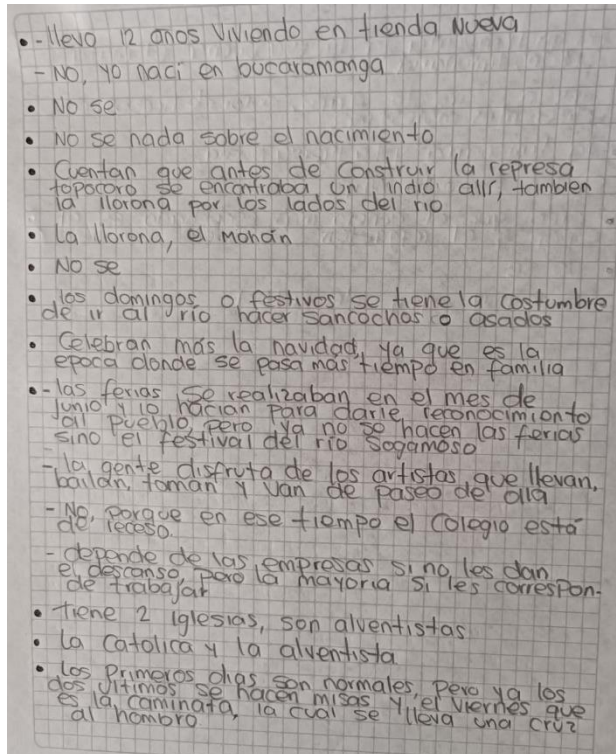 •-llevo 12 anos viviendo en tienda Nueva
- No, yo naci en bucaramanga
• No se
• No se nada sobre el nacimiento
• Cuentan que antes de construir la represa
topocoro se encontraba un indio allí, tambien
la llorona por los lados del rio
• La llorona, el Mohán
• No se
• los domingos o festivos se tiene la costumbre
de ir al río hacer sancochos o asados
• Celebran más la navidad, ya que es la
epoca donde se pasa más tiempo en familia
•-las ferias se realizaban en el mes de
junio y lo hacían para darle reconocimiento
al pueblo, pero ya no se hacen las ferias
sino el festival del río Sogamoso
- la gente disfruta de los artistas que llevan,
bailan, toman y van de paseo de olla
- No, porque en ese tiempo el colegio está
de receso.
- depende de las empresas si no les dan
el descanso, pero la mayoria si les correspon-
de trabajar
• tiene 2 iglesias, son alventistas
• La catolica y la alventista
• Los primeros dias son normales, pero ya los
dos ultimos se hacen misas y el viernes que
es la caminata, la cual se lleva una cruz
al hombro